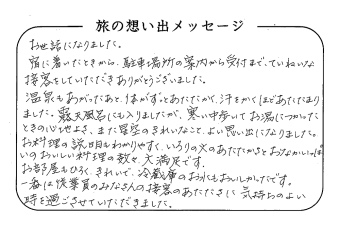 旅の想い出メッセージ
お世話になりました。
宿に着いたときから、駐車場所の案内から受付まで、ていねいな
接客をしていただきありがとうございました。
温泉もあがったあと、なかずっとあたたかで、汗をかくほどあたたまり
ました。露天風呂にも入りましたが、寒い中歩いてお湯につかった
ときの心地よさ、また星空のきれいなこと、よい思い出になりました。
お料理の説明もわかりやすく、いろりの火のあたたかさとおなかいっぱ
いのおいしい料理の数々、大満足です。
お部屋もひろく、きれいで、冷蔵庫のお水もおいしかったです。
一番は従業員のみなさんの接客のあたたさに気持ちのよい
時を過ごさせていただきました。